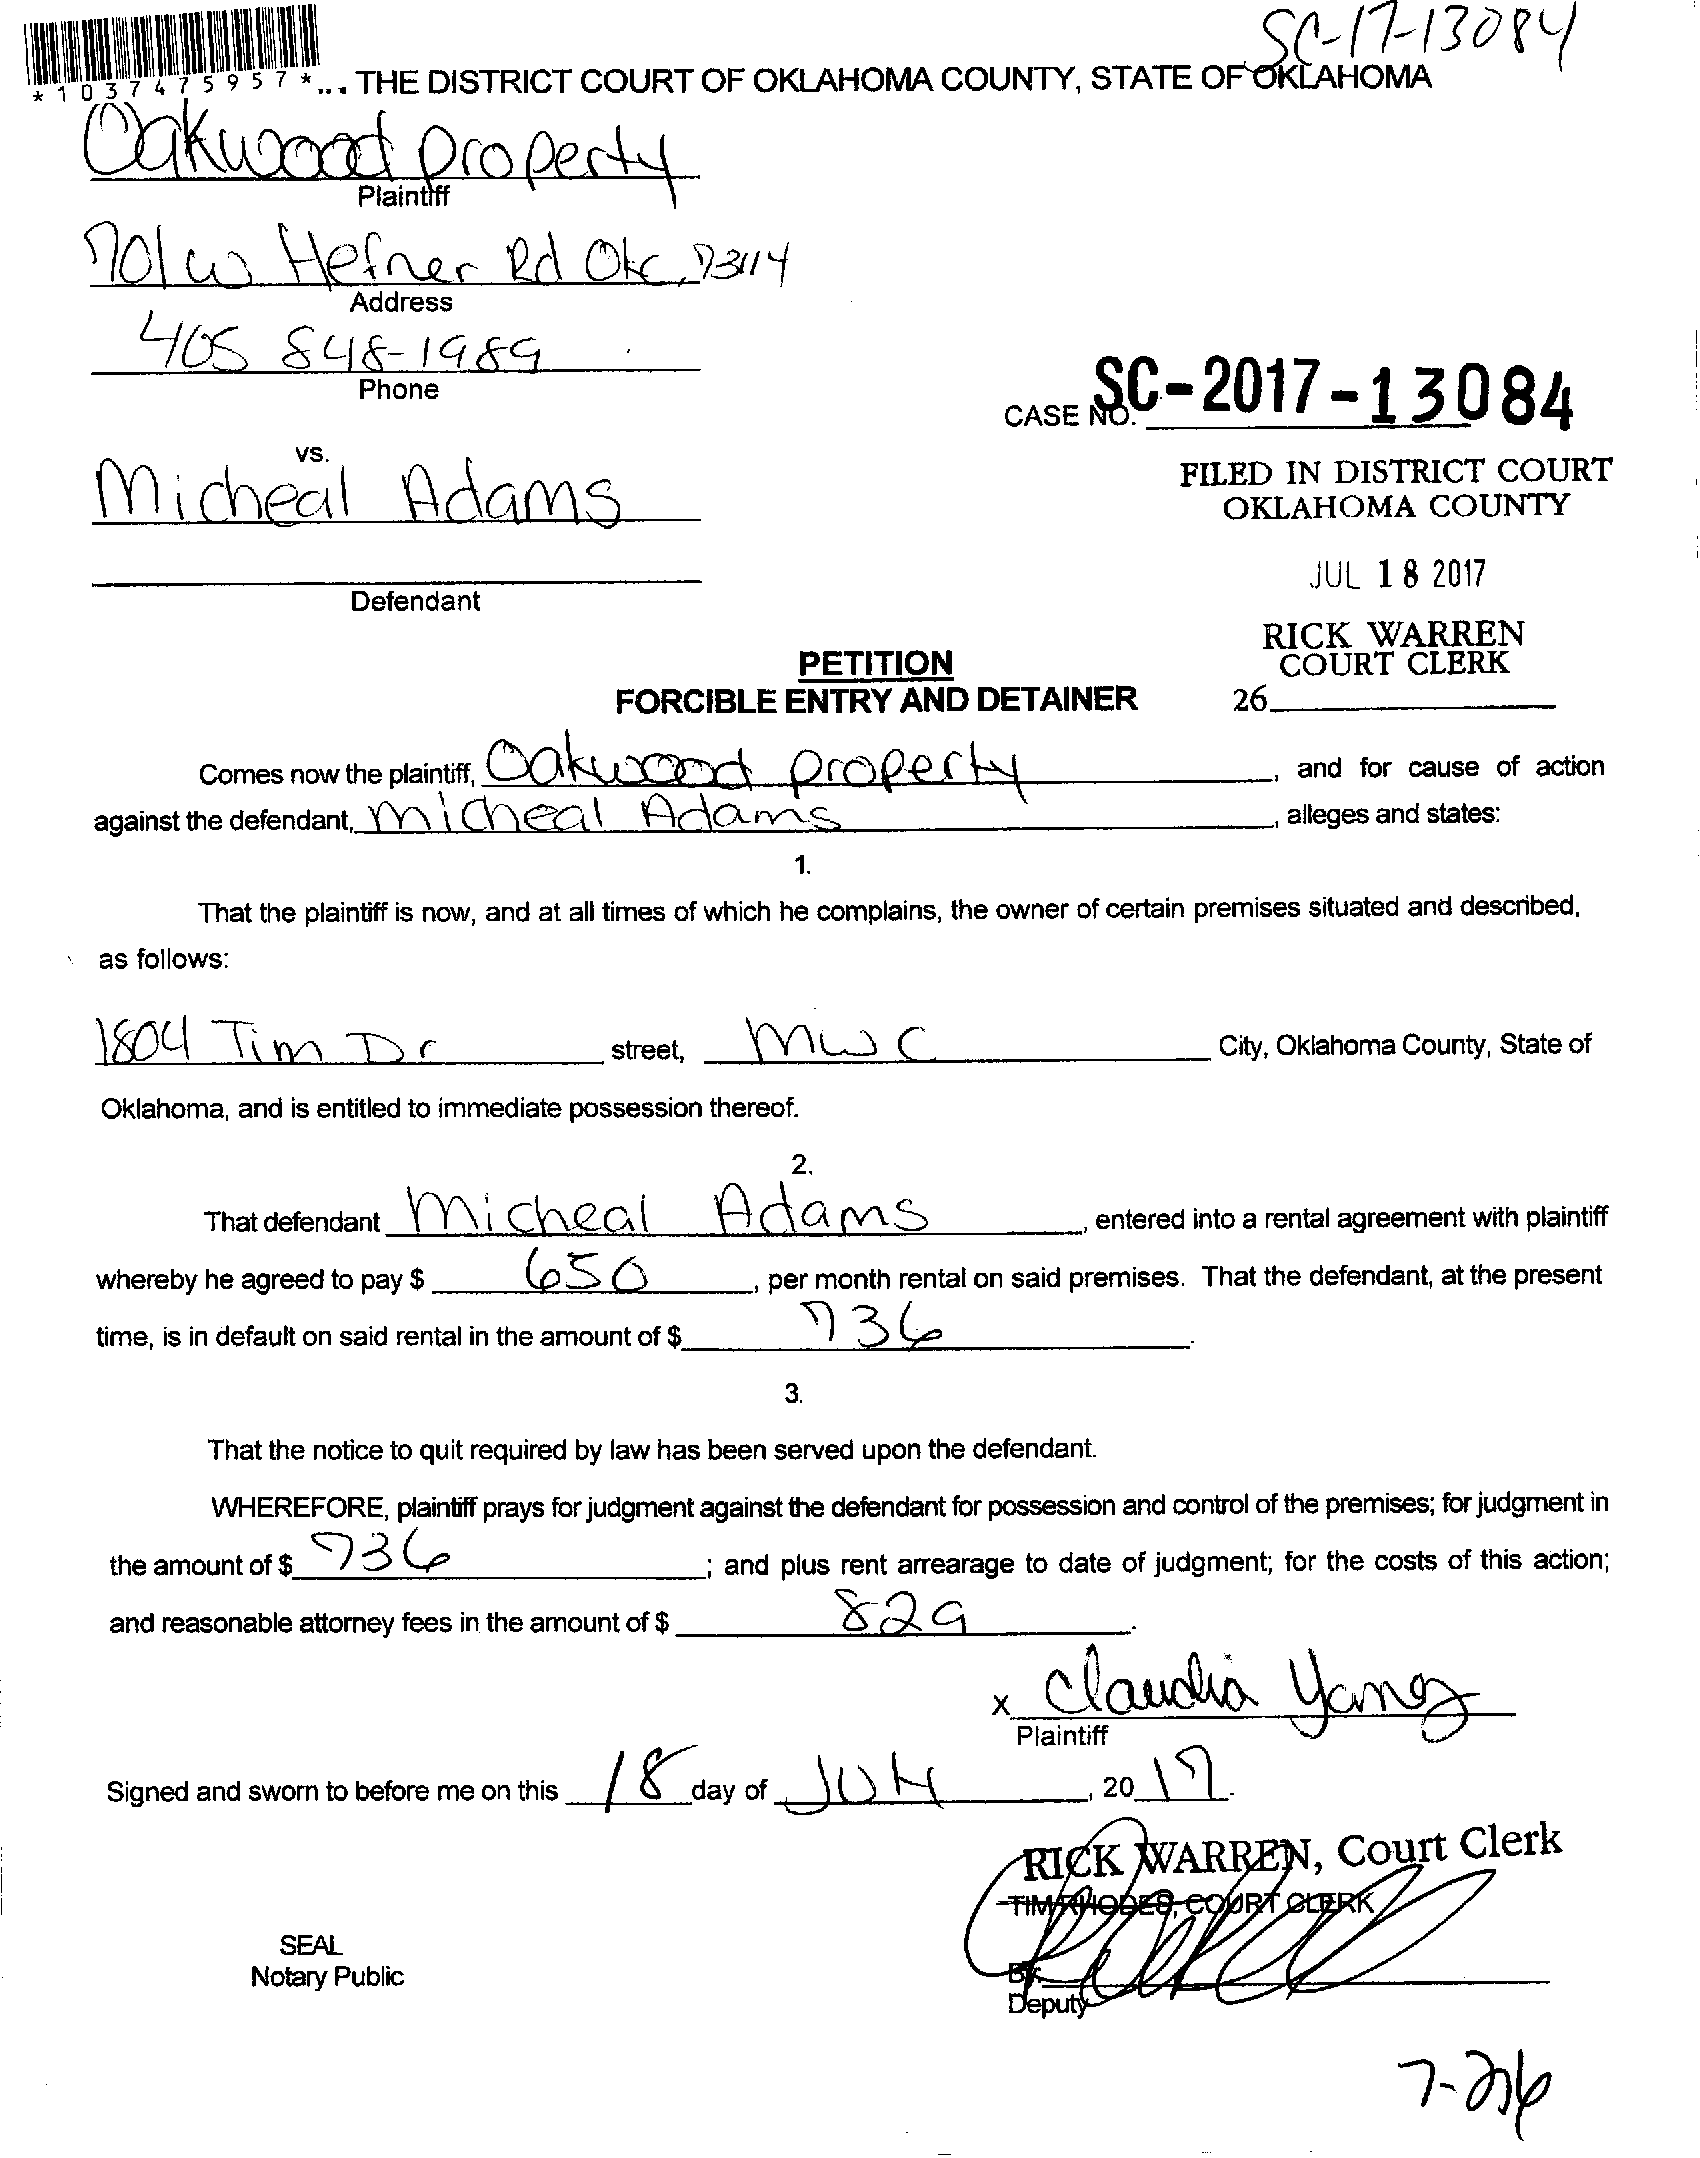 SC-17-13084
*1037475957*... THE DISTRICT COURT OF OKLAHOMA COUNTY, STATE OF OKLAHOMA
Oakwood property
Plaintiff
701 W Hefner Rd Okc, 73114
Address
405 848-1989
Phone
CASE NO. SC-2017-13084
vs.
Micheal Adams
FILED IN DISTRICT COURT
OKLAHOMA COUNTY
JUL 18 2017
Defendant
RICK WARREN
COURT CLERK
26
PETITION
FORCIBLE ENTRY AND DETAINER
Comes now the plaintiff, Oakwood property, and for cause of action
against the defendant, Micheal Adams, alleges and states:
1.
That the plaintiff is now, and at all times of which he complains, the owner of certain premises situated and described,
as follows:
1804 Tim Dr street, MWC City, Oklahoma County, State of
Oklahoma, and is entitled to immediate possession thereof.
2.
That defendant Micheal Adams, entered into a rental agreement with plaintiff
whereby he agreed to pay $ 650, per month rental on said premises. That the defendant, at the present
time, is in default on said rental in the amount of $ 736.
3.
That the notice to quit required by law has been served upon the defendant.
WHEREFORE, plaintiff prays for judgment against the defendant for possession and control of the premises; for judgment in
the amount of $ 736; and plus rent arrearage to date of judgment; for the costs of this action;
and reasonable attorney fees in the amount of $ 829.
x Claudia Yanez
Plaintiff
Signed and sworn to before me on this 18 day of July, 2017.
RICK WARREN, Court Clerk
TIM RHODES, COURT CLERK
SEAL
Notary Public
By:
Deputy